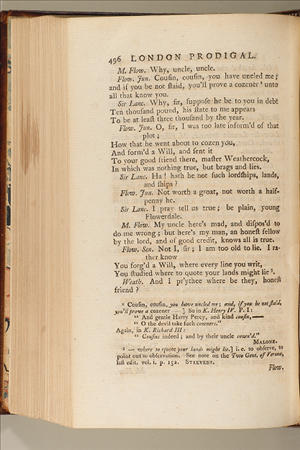 496 LONDON PRODIGAL.
M. Flow. Why, uncle, uncle.
Flow. Jun. Cousin, cousin, you have uncled me;
and if you be not staid, you'll prove a cozener ¹ unto
all that know you.
Sir Lanc. Why, sir, suppose he be to you in debt
Ten thousand pound, his state to me appears
To be at least three thousand by the year.
Flow. Jun. O, sir, I was too late inform'd of that
plot;
How that he went about to cozen you,
And form'd a Will, and sent it
To your good friend there, master Weathercock,
In which was nothing true, but brags and lies.
Sir Lanc. Ha! hath he not such lordships, lands,
and ships?
Flow. Jun. Not worth a groat, not worth a half-
penny he.
Sir Lanc. I pray tell us true; be plain, young
Flowerdale.
M. Flow. My uncle here's mad, and dispos'd to
do me wrong; but here's my man, an honest fellow
by the lord, and of good credit, knows all is true.
Flow. Sen. Not I, sir; I am too old to lie. I ra-
ther know
You forg'd a Will, where every line you writ,
You studied where to quote your lands might lie ².
Weath. And I pr'ythee where be they, honest
friend?
¹ Cousin, cousin, you have uncled me; and, if you be not staid,
you'll prove a cozener —] So in K. Henry IV. P. I:
" And gentle Harry Percy, and kind cousin,—
" O the devil take such cozeners."
Again, in K. Richard III:
" Cousins indeed; and by their uncle cozen'd."
MALONE.
² — where to quote your lands might lie.] i. e. to observe, to
point out to observation. See note on the Two Gent. of Verona,
last edit. vol. i. p. 152. STEEVENS.
Flow.